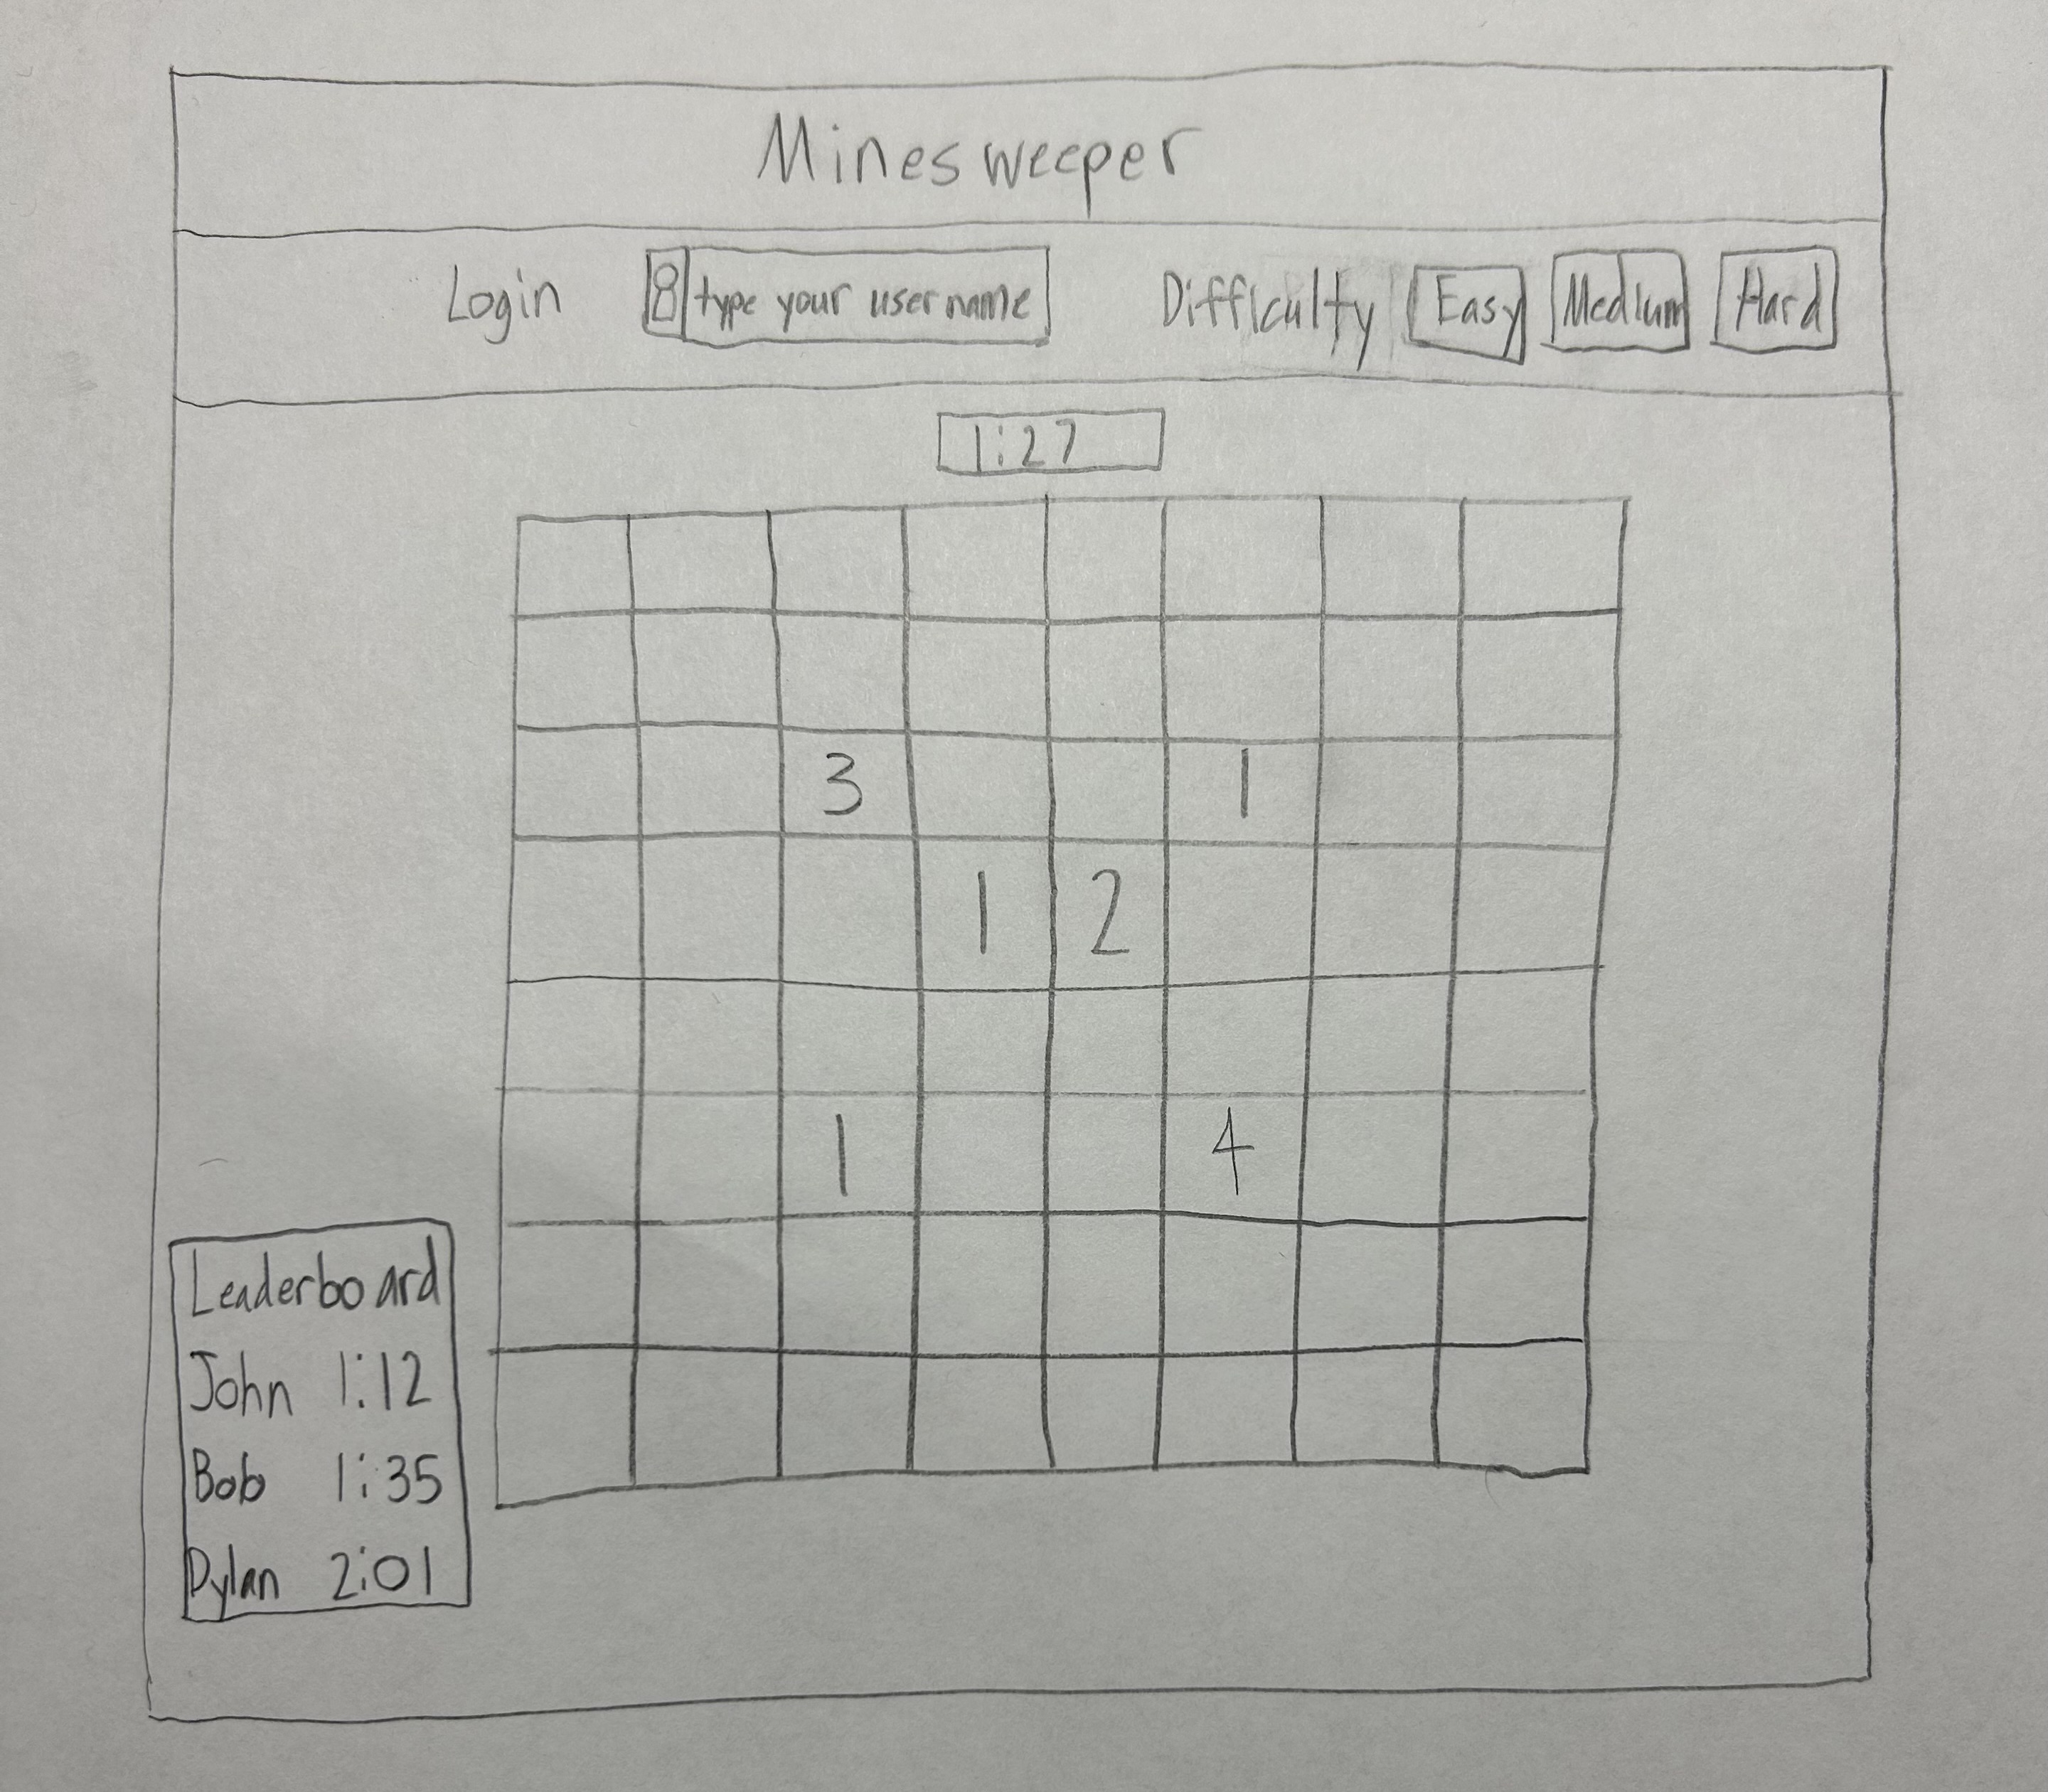 Minesweeper
Login type your username Difficulty Easy Medium Hard
1:27
3 1
1 2
1 4
Leaderboard
John 1:12
Bob 1:35
Dylan 2:01